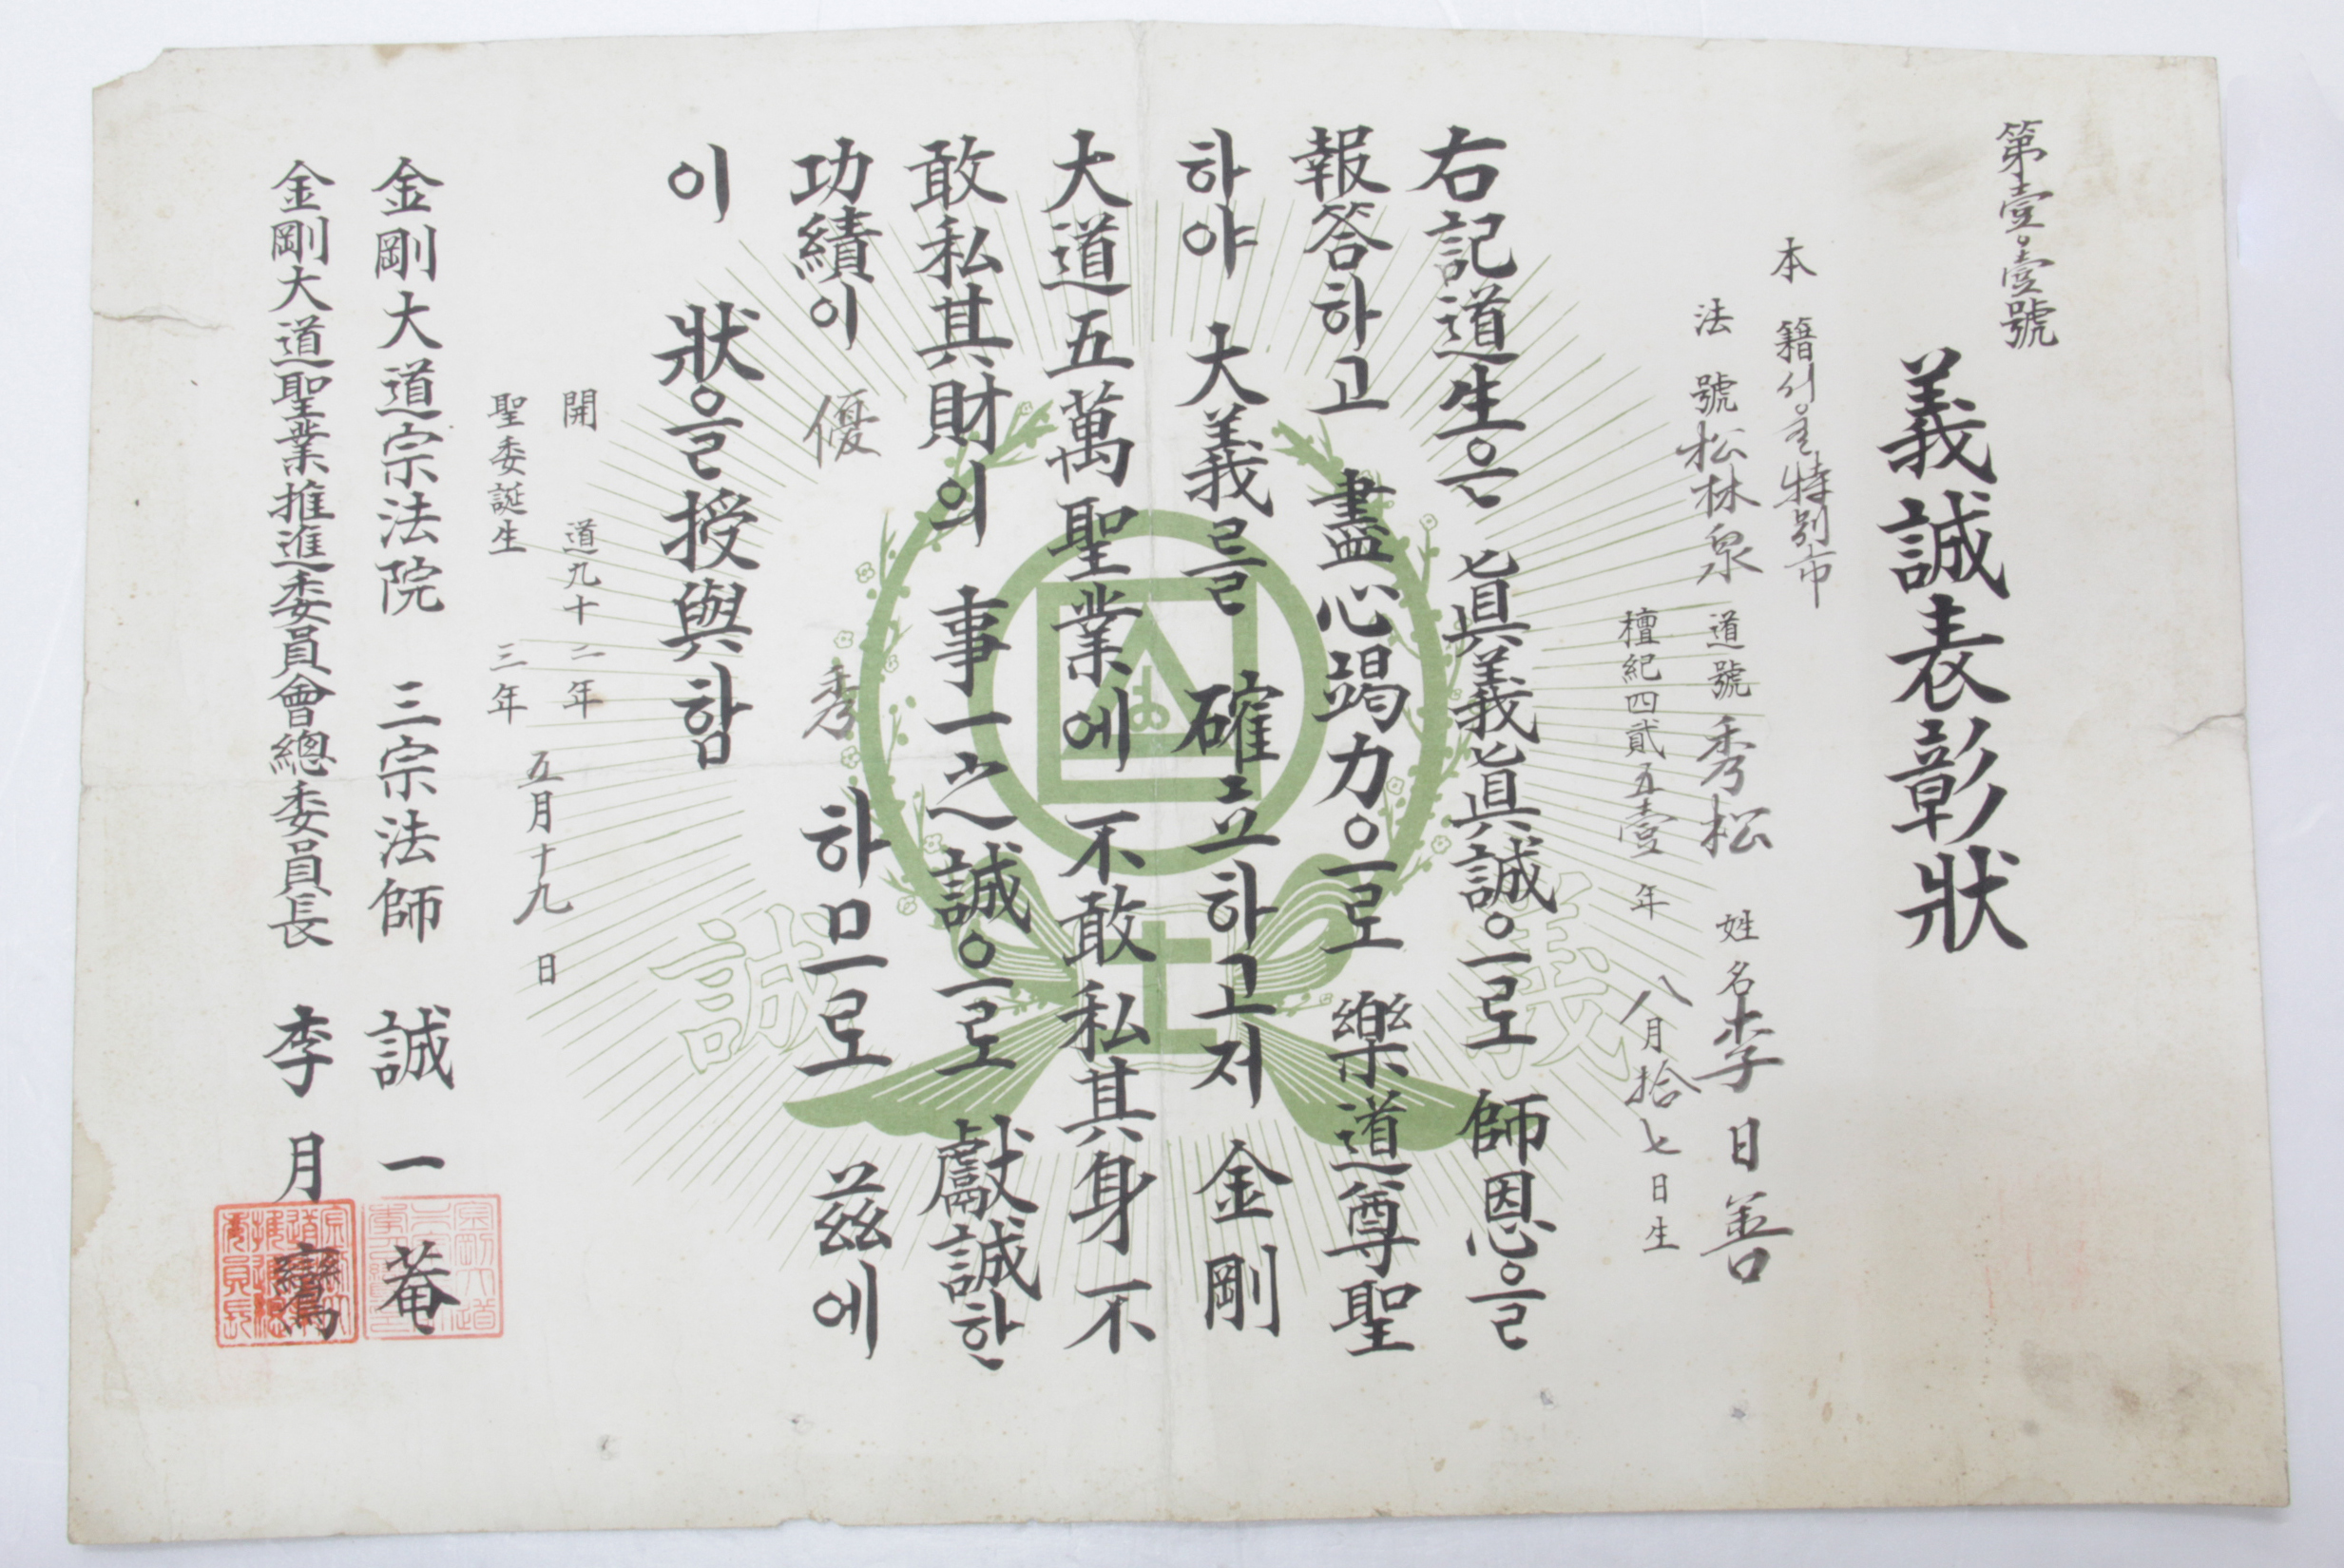 第壹。壹號
義誠表彰狀
本籍서울特別市
法號松林泉 道號秀松 姓名李日善
檀紀四貳五壹年 八月拾七日生
右記道生은 眞義眞誠으로 師恩을
報答하고 盡心竭力으로 樂道尊聖
하야 大義를 確立하고저 金剛
大道五萬聖業에 不敢私其身不
敢私其財의 事一之誠으로 獻誠한
功績이 優秀하므로 茲에
이 狀을 授與함
開道九十二年
聖委誕生 三年
五月十九日
金剛大道宗法院 三宗法師 誠一菴
金剛大道聖業推進委員會總委員長 李月鸞
誠
義